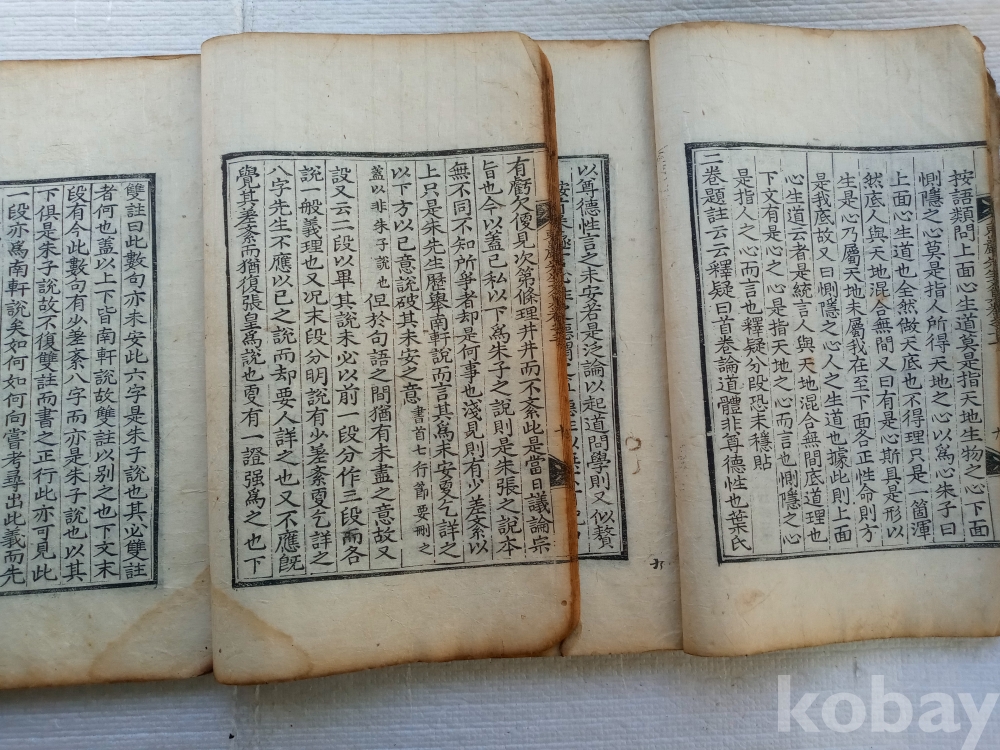 按語類問上面心生道莫是指天地生物之心下面
惻隱之心莫是指人所得天地之心以爲心朱子曰
上面心生道也全然做天底也不得理只是一箇渾
然底人與天地混合無間又曰有是心斯具是形以
生是心乃屬天地未屬我在至下面各正性命則方
是我底故又曰惻隱之心人之生道也據此則上面
心生道云者是統言人與天地混合無間底道理也
下文有是心是指天地之心而言也惻隱之心
是指人之心而言也釋疑分段恐未穩貼
二卷題註云釋疑曰首卷論道體非尊德性也葉氏
以尊德性言之未安若是泛論以起道問學則又似贅
有虧欠傻見次第條理井井而不紊此是當日議論宗
旨也今以蓋已私以下爲朱子之說則是朱張之說本
無不同不知所爭者却是何事也淺見則有少差紊以
上只是朱先生歷舉南軒說而言其爲未安夏乞詳之
以下方以已意說破其未安之意書首七行節要刪之
蓋以非朱子說也但於句語之間猶有未盡之意故又
設又云二段以畢其說未必以前一段分作三段而各
說一般義理也又况末段分明說有少差紊夏乞詳之
八字先生不應以已之說而却要人詳之也又不應旣
覺其差紊而猶復張皇爲說也夏有一證强爲之也下
雙註曰此數句亦未安此六字是朱子說也其必雙註
者何也盖以上下皆南軒說故雙註以别之也下文末
段有今此數句有少差紊八字而亦是朱子說也以其
下俱是朱子說故不復雙註而書之正行此亦可見此
一段亦爲南軒說矣如何如何向嘗考尋出此義而先
kobay